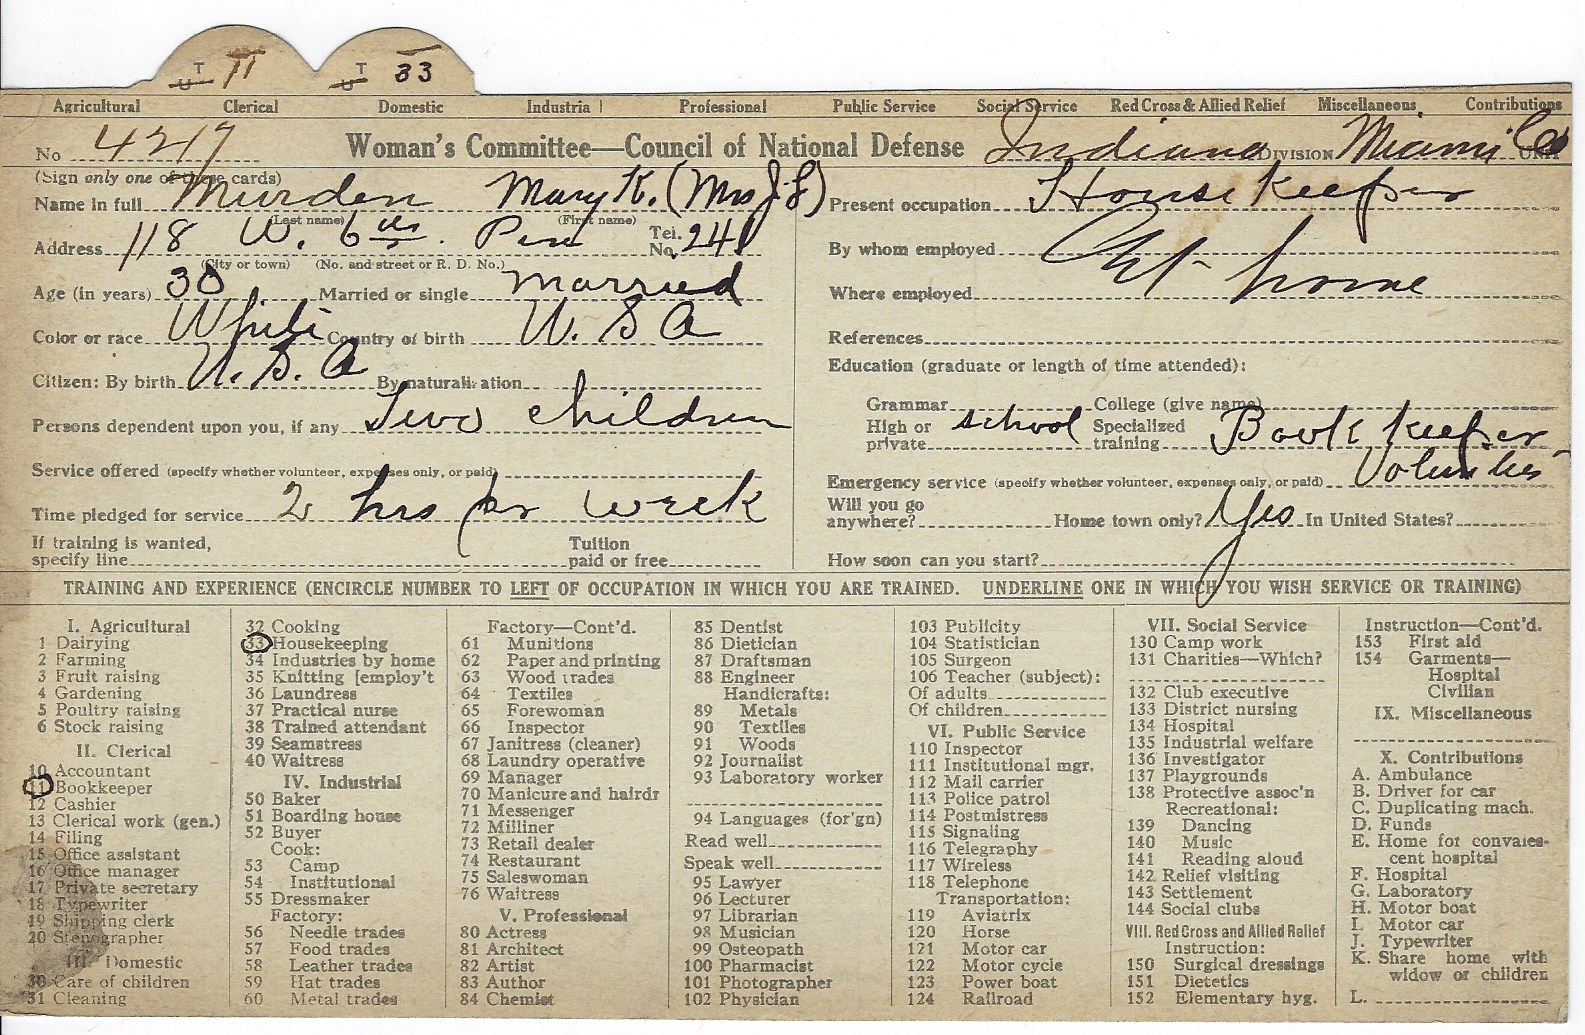 T 11 T 33
U U
Agricultural Clerical Domestic Industrial Professional Public Service Social Service Red Cross & Allied Relief Miscellaneous Contributions
No 4217 Woman's Committee—Council of National Defense Indiana DIVISION Miami Co UNIT
(Sign only one of these cards)
Name in full Murden Mary K. (Mrs J.L)
(Last name) (First name)
Address 118 W. 6th. Peru Tel. No. 241
(City or town) (No. and street or R. D. No.)
Age (in years) 30 Married or single married
Color or race White Country of birth U. S A
Citizen: By birth U. S. A By naturalization
Persons dependent upon you, if any Two children
Service offered (specify whether volunteer, expenses only, or paid)
Time pledged for service 2 hrs per week
If training is wanted, specify line Tuition paid or free
Present occupation House keeper
By whom employed At home
Where employed
References
Education (graduate or length of time attended):
Grammar College (give name)
High or private school Specialized training Book keeper
Emergency service (specify whether volunteer, expenses only, or paid) Volunteer
Will you go anywhere? Home town only? Yes In United States?
How soon can you start?
TRAINING AND EXPERIENCE (ENCIRCLE NUMBER TO LEFT OF OCCUPATION IN WHICH YOU ARE TRAINED. UNDERLINE ONE IN WHICH YOU WISH SERVICE OR TRAINING)
I. Agricultural
1 Dairying
2 Farming
3 Fruit raising
4 Gardening
5 Poultry raising
6 Stock raising
II. Clerical
10 Accountant
11 Bookkeeper
12 Cashier
13 Clerical work (gen.)
14 Filing
15 Office assistant
16 Office manager
17 Private secretary
18 Typewriter
19 Shipping clerk
20 Stenographer
III. Domestic
30 Care of children
31 Cleaning
32 Cooking
33 Housekeeping
34 Industries by home
35 Knitting [employ't
36 Laundress
37 Practical nurse
38 Trained attendant
39 Seamstress
40 Waitress
IV. Industrial
50 Baker
51 Boarding house
52 Buyer
Cook:
53 Camp
54 Institutional
55 Dressmaker
Factory:
56 Needle trades
57 Food trades
58 Leather trades
59 Hat trades
60 Metal trades
Factory—Cont'd.
61 Munitions
62 Paper and printing
63 Wood trades
64 Textiles
65 Forewoman
66 Inspector
67 Janitress (cleaner)
68 Laundry operative
69 Manager
70 Manicure and hairdr
71 Messenger
72 Milliner
73 Retail dealer
74 Restaurant
75 Saleswoman
76 Waitress
V. Professional
80 Actress
81 Architect
82 Artist
83 Author
84 Chemist
85 Dentist
86 Dietician
87 Draftsman
88 Engineer
Handicrafts:
89 Metals
90 Textiles
91 Woods
92 Journalist
93 Laboratory worker
94 Languages (for'gn)
Read well
Speak well
95 Lawyer
96 Lecturer
97 Librarian
98 Musician
99 Osteopath
100 Pharmacist
101 Photographer
102 Physician
103 Publicity
104 Statistician
105 Surgeon
106 Teacher (subject):
Of adults
Of children
VI. Public Service
110 Inspector
111 Institutional mgr.
112 Mail carrier
113 Police patrol
114 Postmistress
115 Signaling
116 Telegraphy
117 Wireless
118 Telephone
Transportation:
119 Aviatrix
120 Horse
121 Motor car
122 Motor cycle
123 Power boat
124 Railroad
VII. Social Service
130 Camp work
131 Charities—Which?
132 Club executive
133 District nursing
134 Hospital
135 Industrial welfare
136 Investigator
137 Playgrounds
138 Protective assoc'n
Recreational:
139 Dancing
140 Music
141 Reading aloud
142 Relief visiting
143 Settlement
144 Social clubs
VIII. Red Cross and Allied Relief
Instruction:
150 Surgical dressings
151 Dietetics
152 Elementary hyg.
Instruction—Cont'd.
153 First aid
154 Garments—
Hospital
Civilian
IX. Miscellaneous
X. Contributions
A. Ambulance
B. Driver for car
C. Duplicating mach.
D. Funds
E. Home for convales-
cent hospital
F. Hospital
G. Laboratory
H. Motor boat
I. Motor car
J. Typewriter
K. Share home with
widow or children
L.